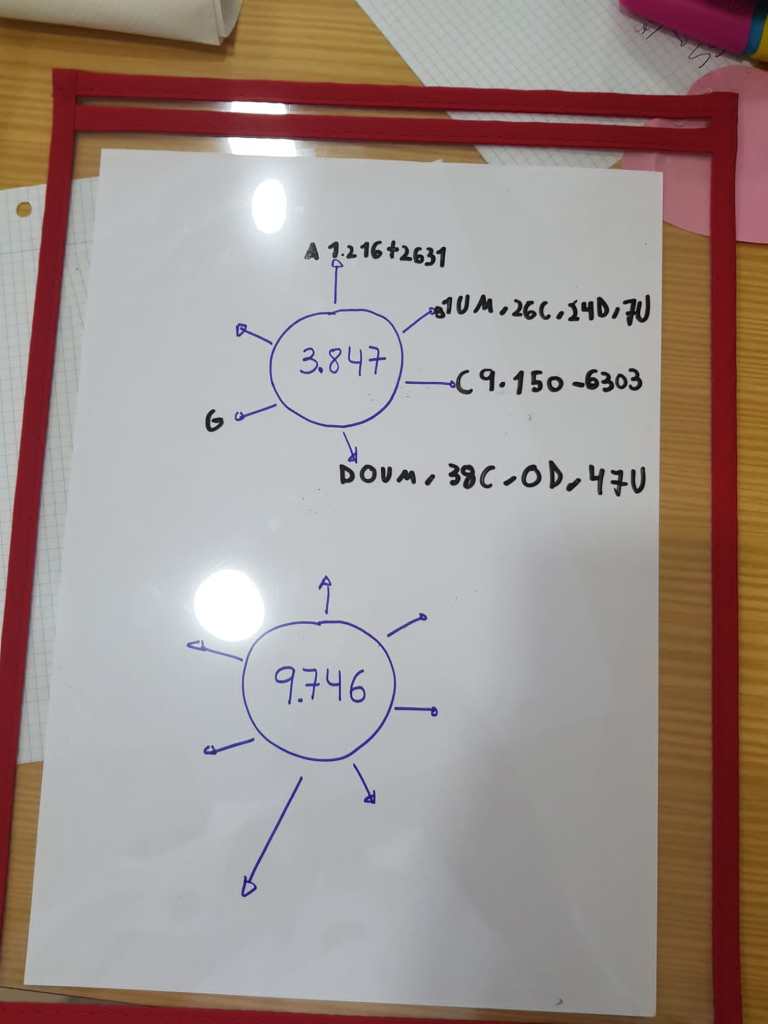 A 1.216+2631
1UM, 26C, 14D, 7U
3.847
C 9.150-6303
G
D0UM, 38C, 0D, 47U
9.746